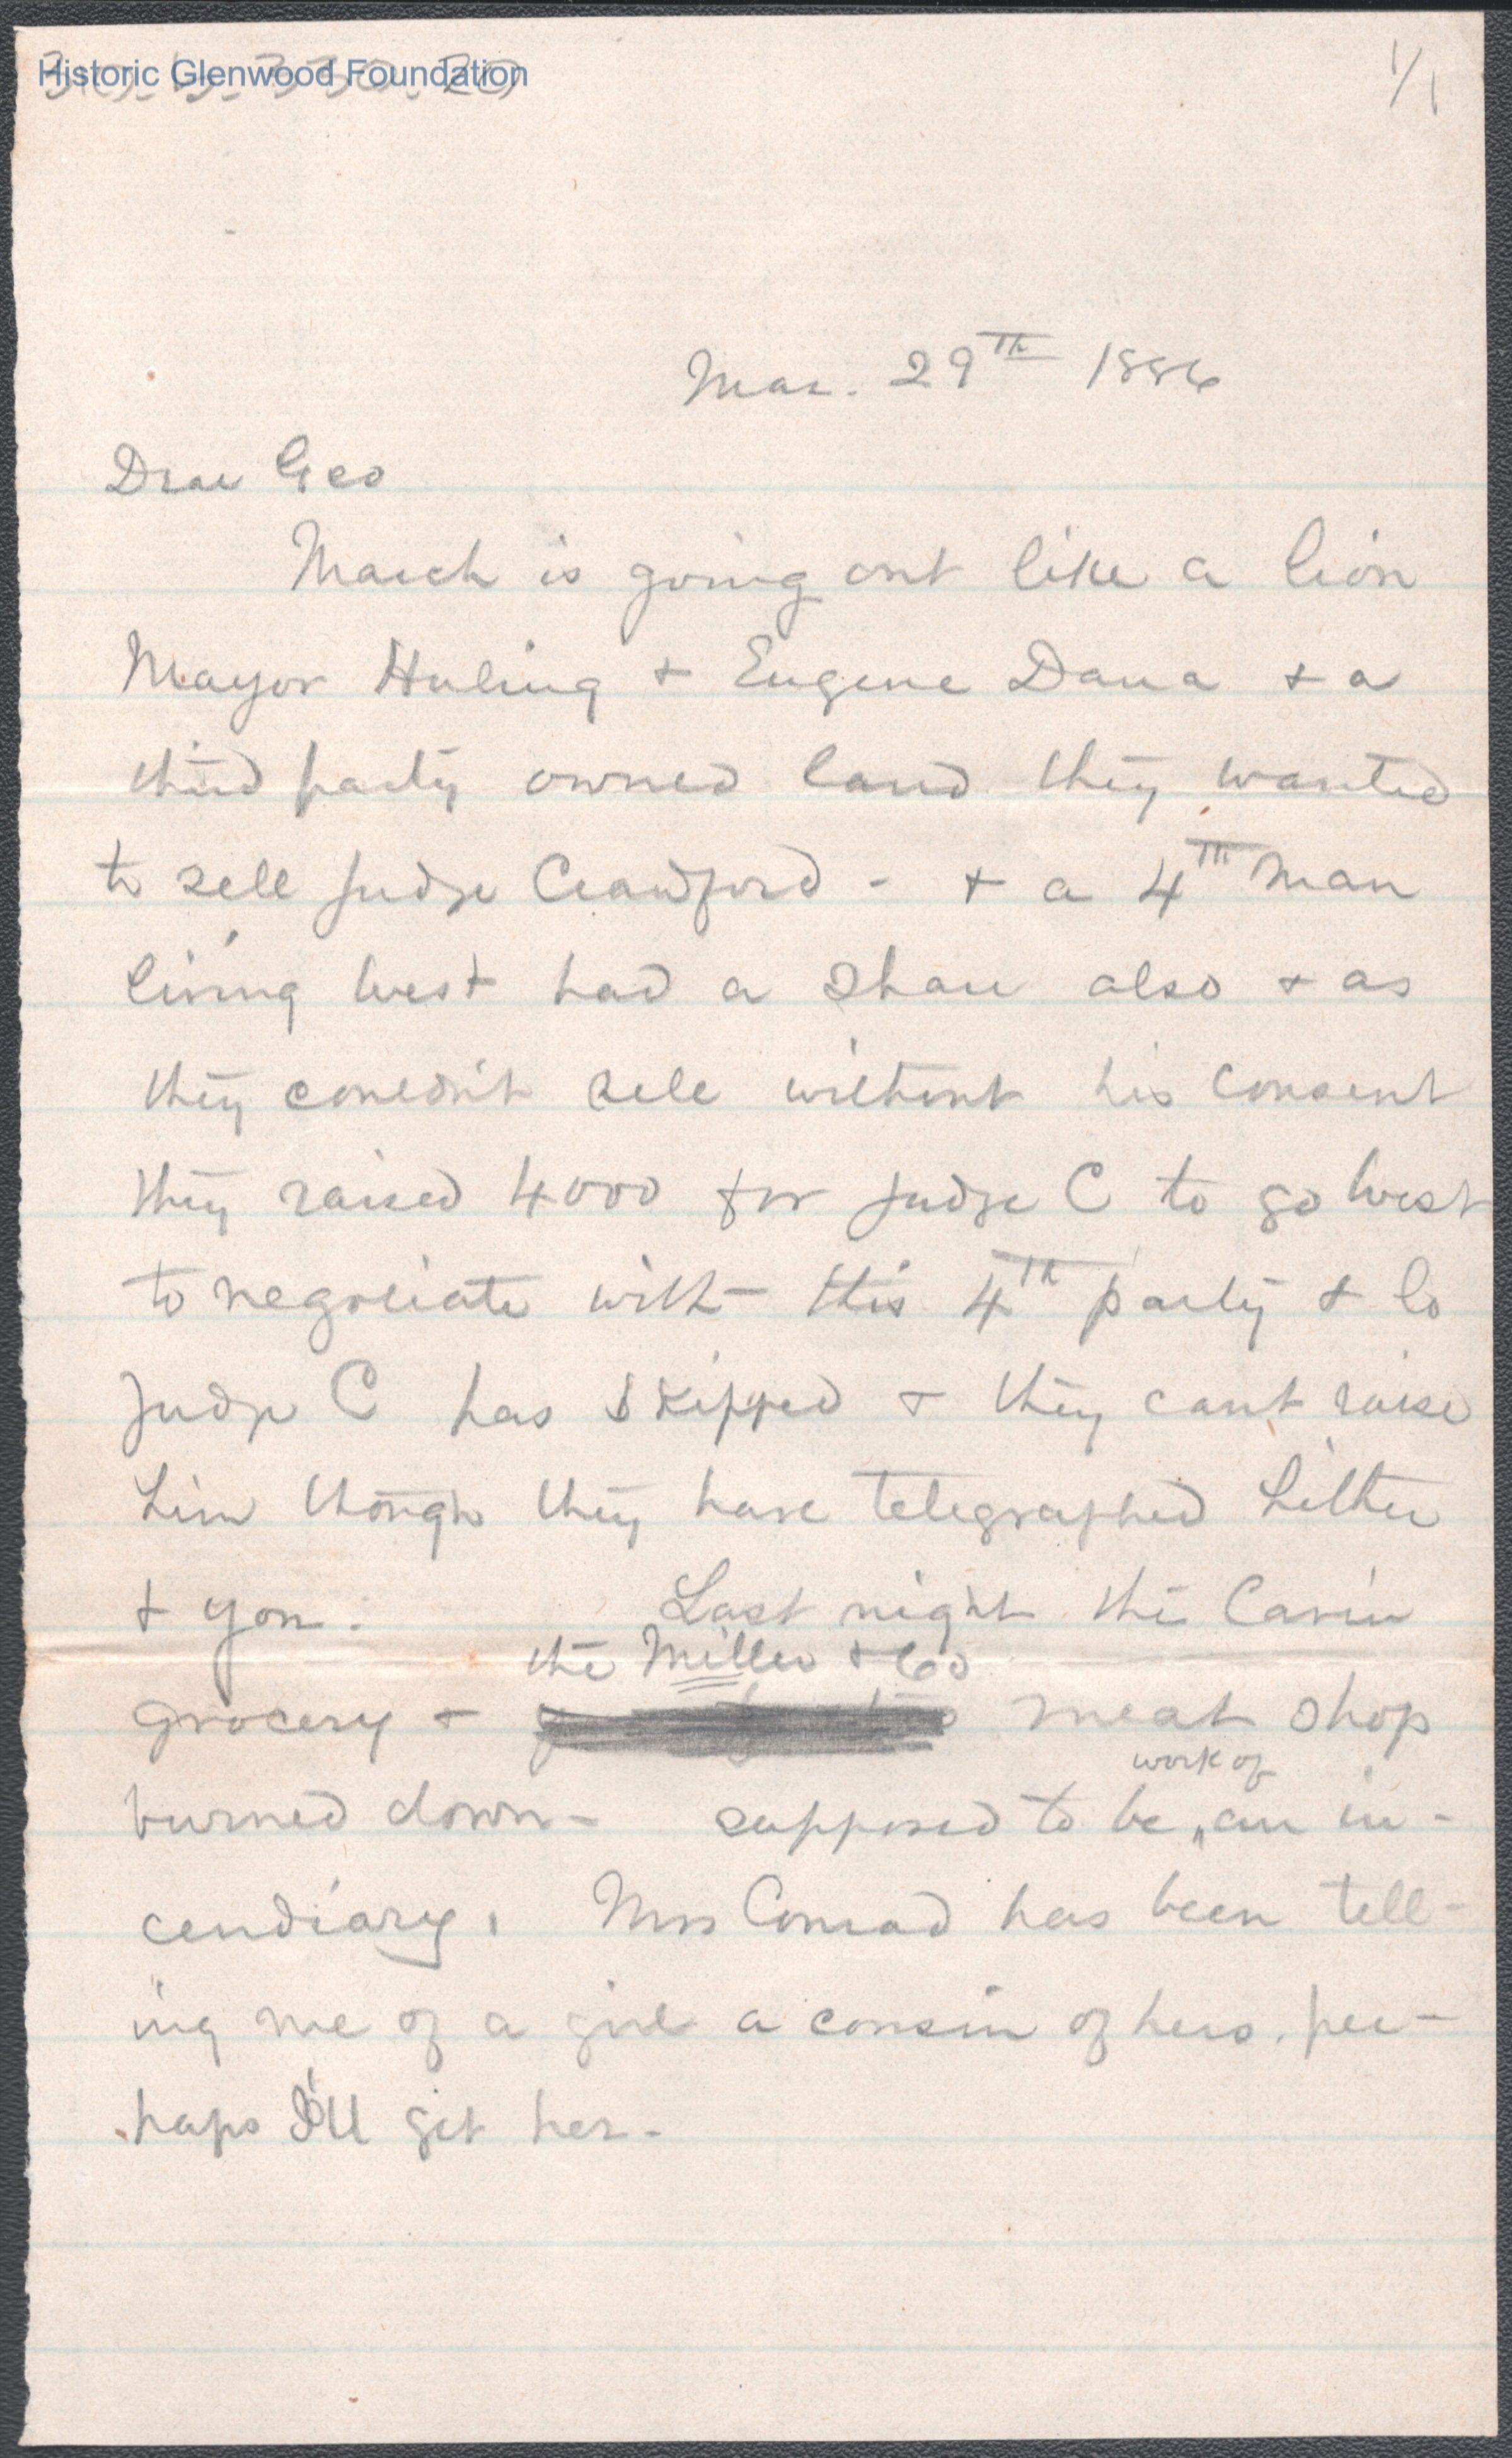 Historic Glenwood Foundation
1/1
Mar. 29th 1886
Dear Geo
March is going out like a lion
Mayor Huling + Eugene Dana + a
third party owned land they wanted
to sell Judge Crawford - + a 4th man
living West had a share also + as
they couldn't sell without his consent
they raised 4000 for Judge C to go West
to negotiate with this 4th party + lo
Judge C has skipped + they cant raise
him though they have telegraphed hither
+ yon. Last night the Cavin
the Miller + Co
grocery + meat shop
work of
burned down - supposed to be an in-
cendiary. Mrs Conrad has been tell-
ing me of a girl a cousin of hers. per-
haps I'll get her.